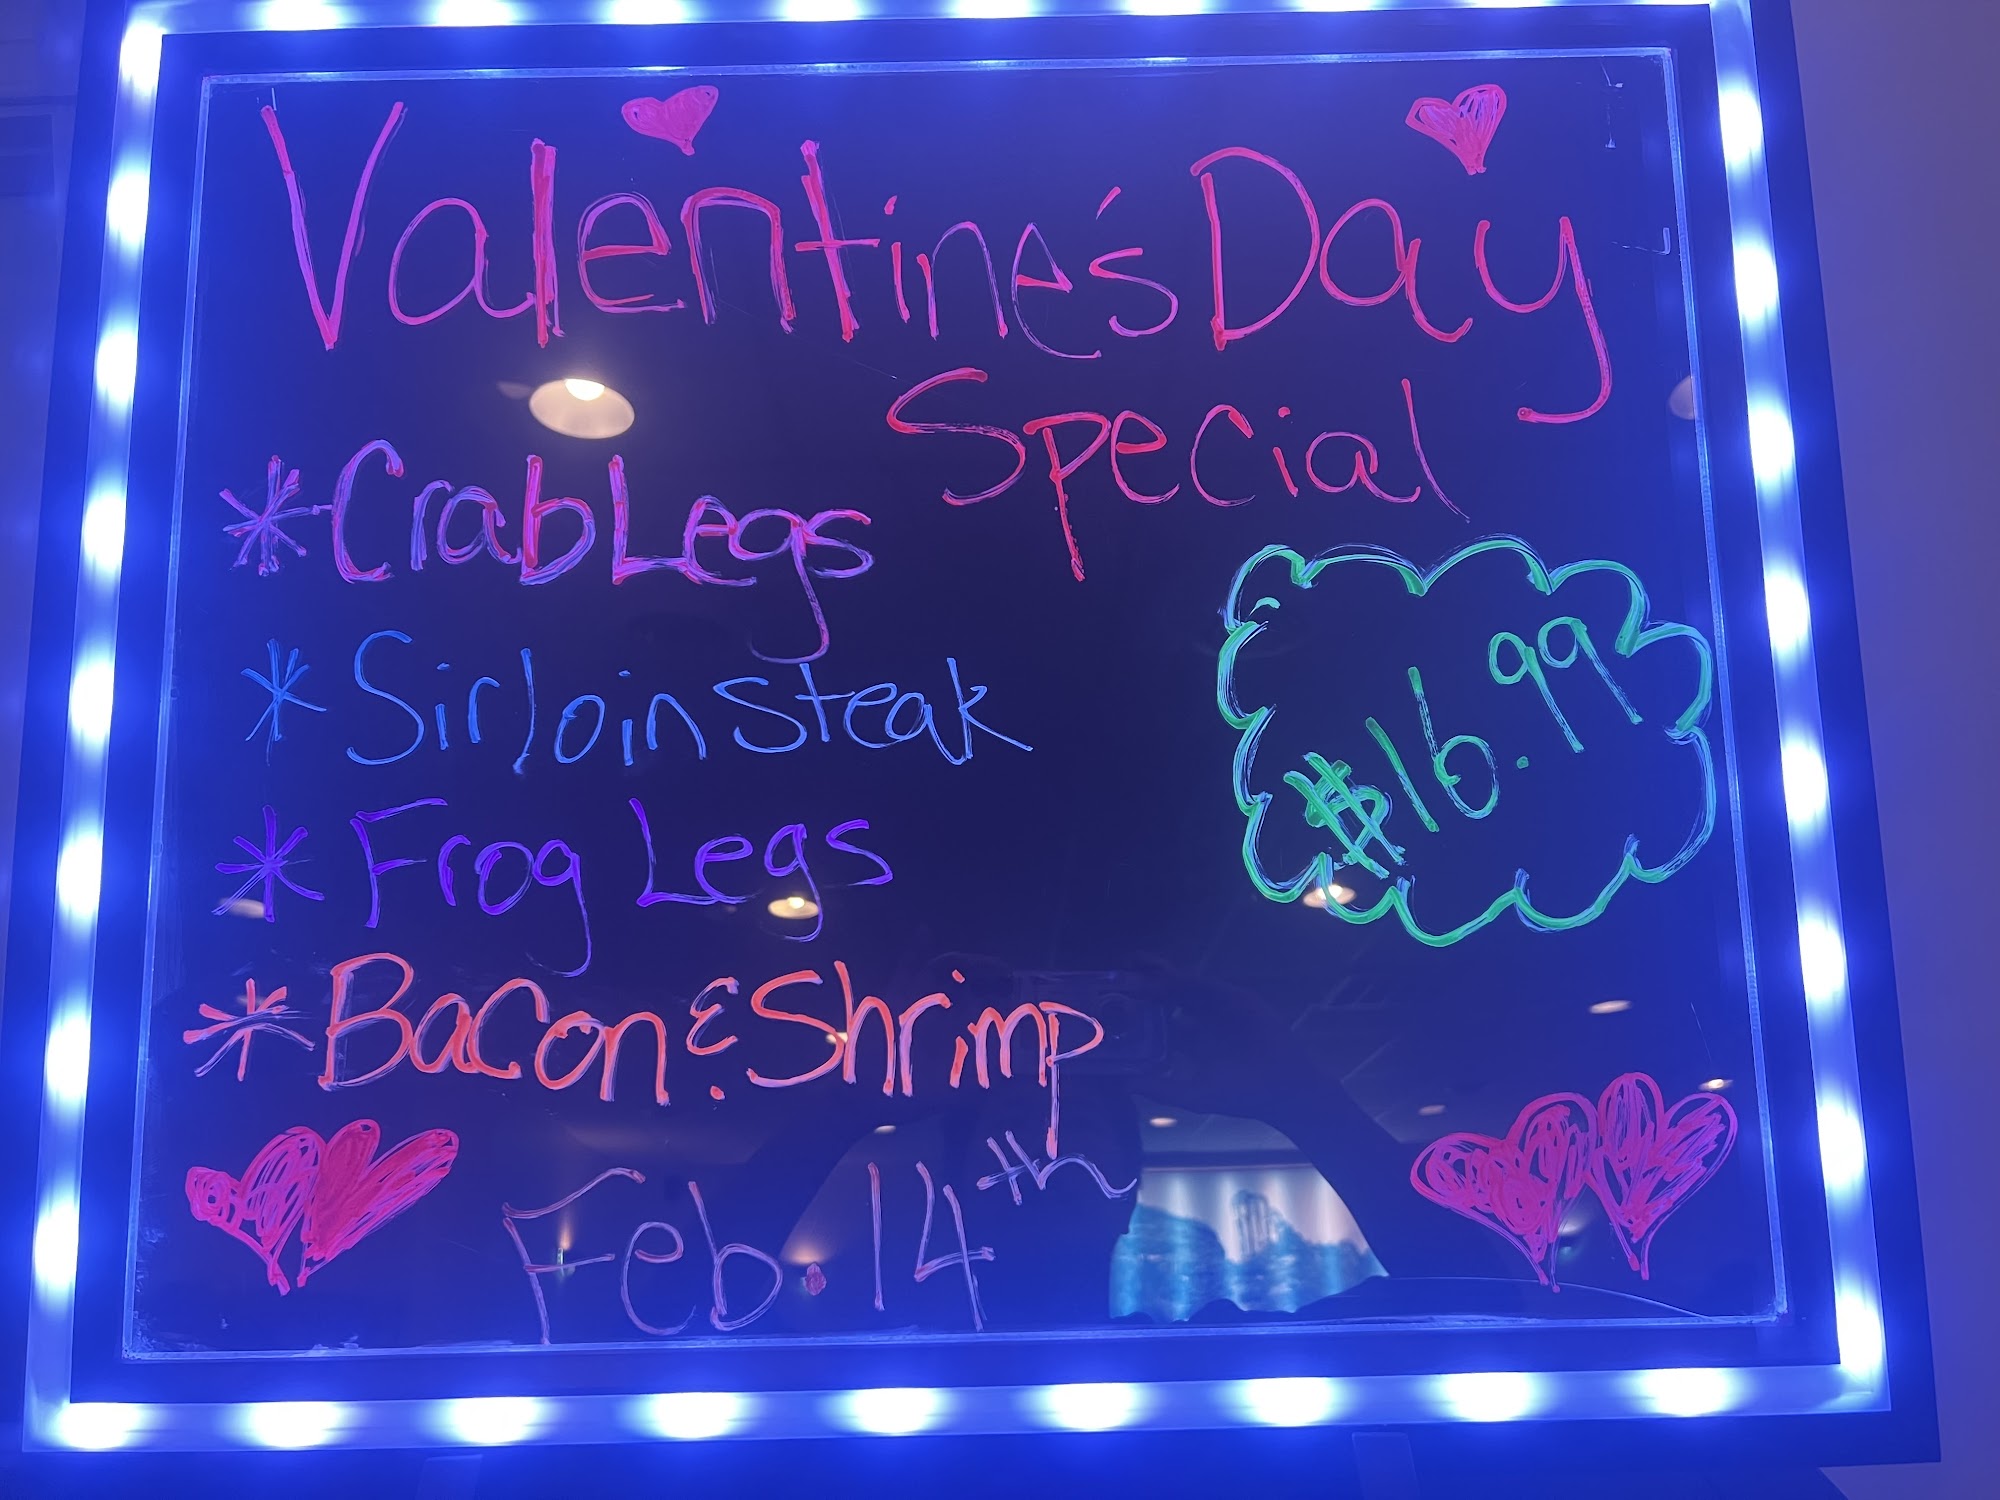 Valentine's Day
Special
* Crab Legs
* Sirloin Steak
* Frog Legs
* Bacon & Shrimp
$16.99
Feb. 14th